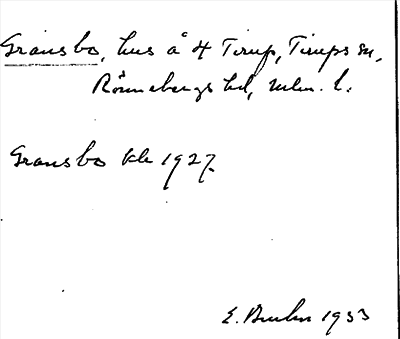 Gransbo, hus å 4 Tirup, Tirups sn,
Rönnebergs hd, Mlm. l.
Gransbo kk 1927.
E. 1933